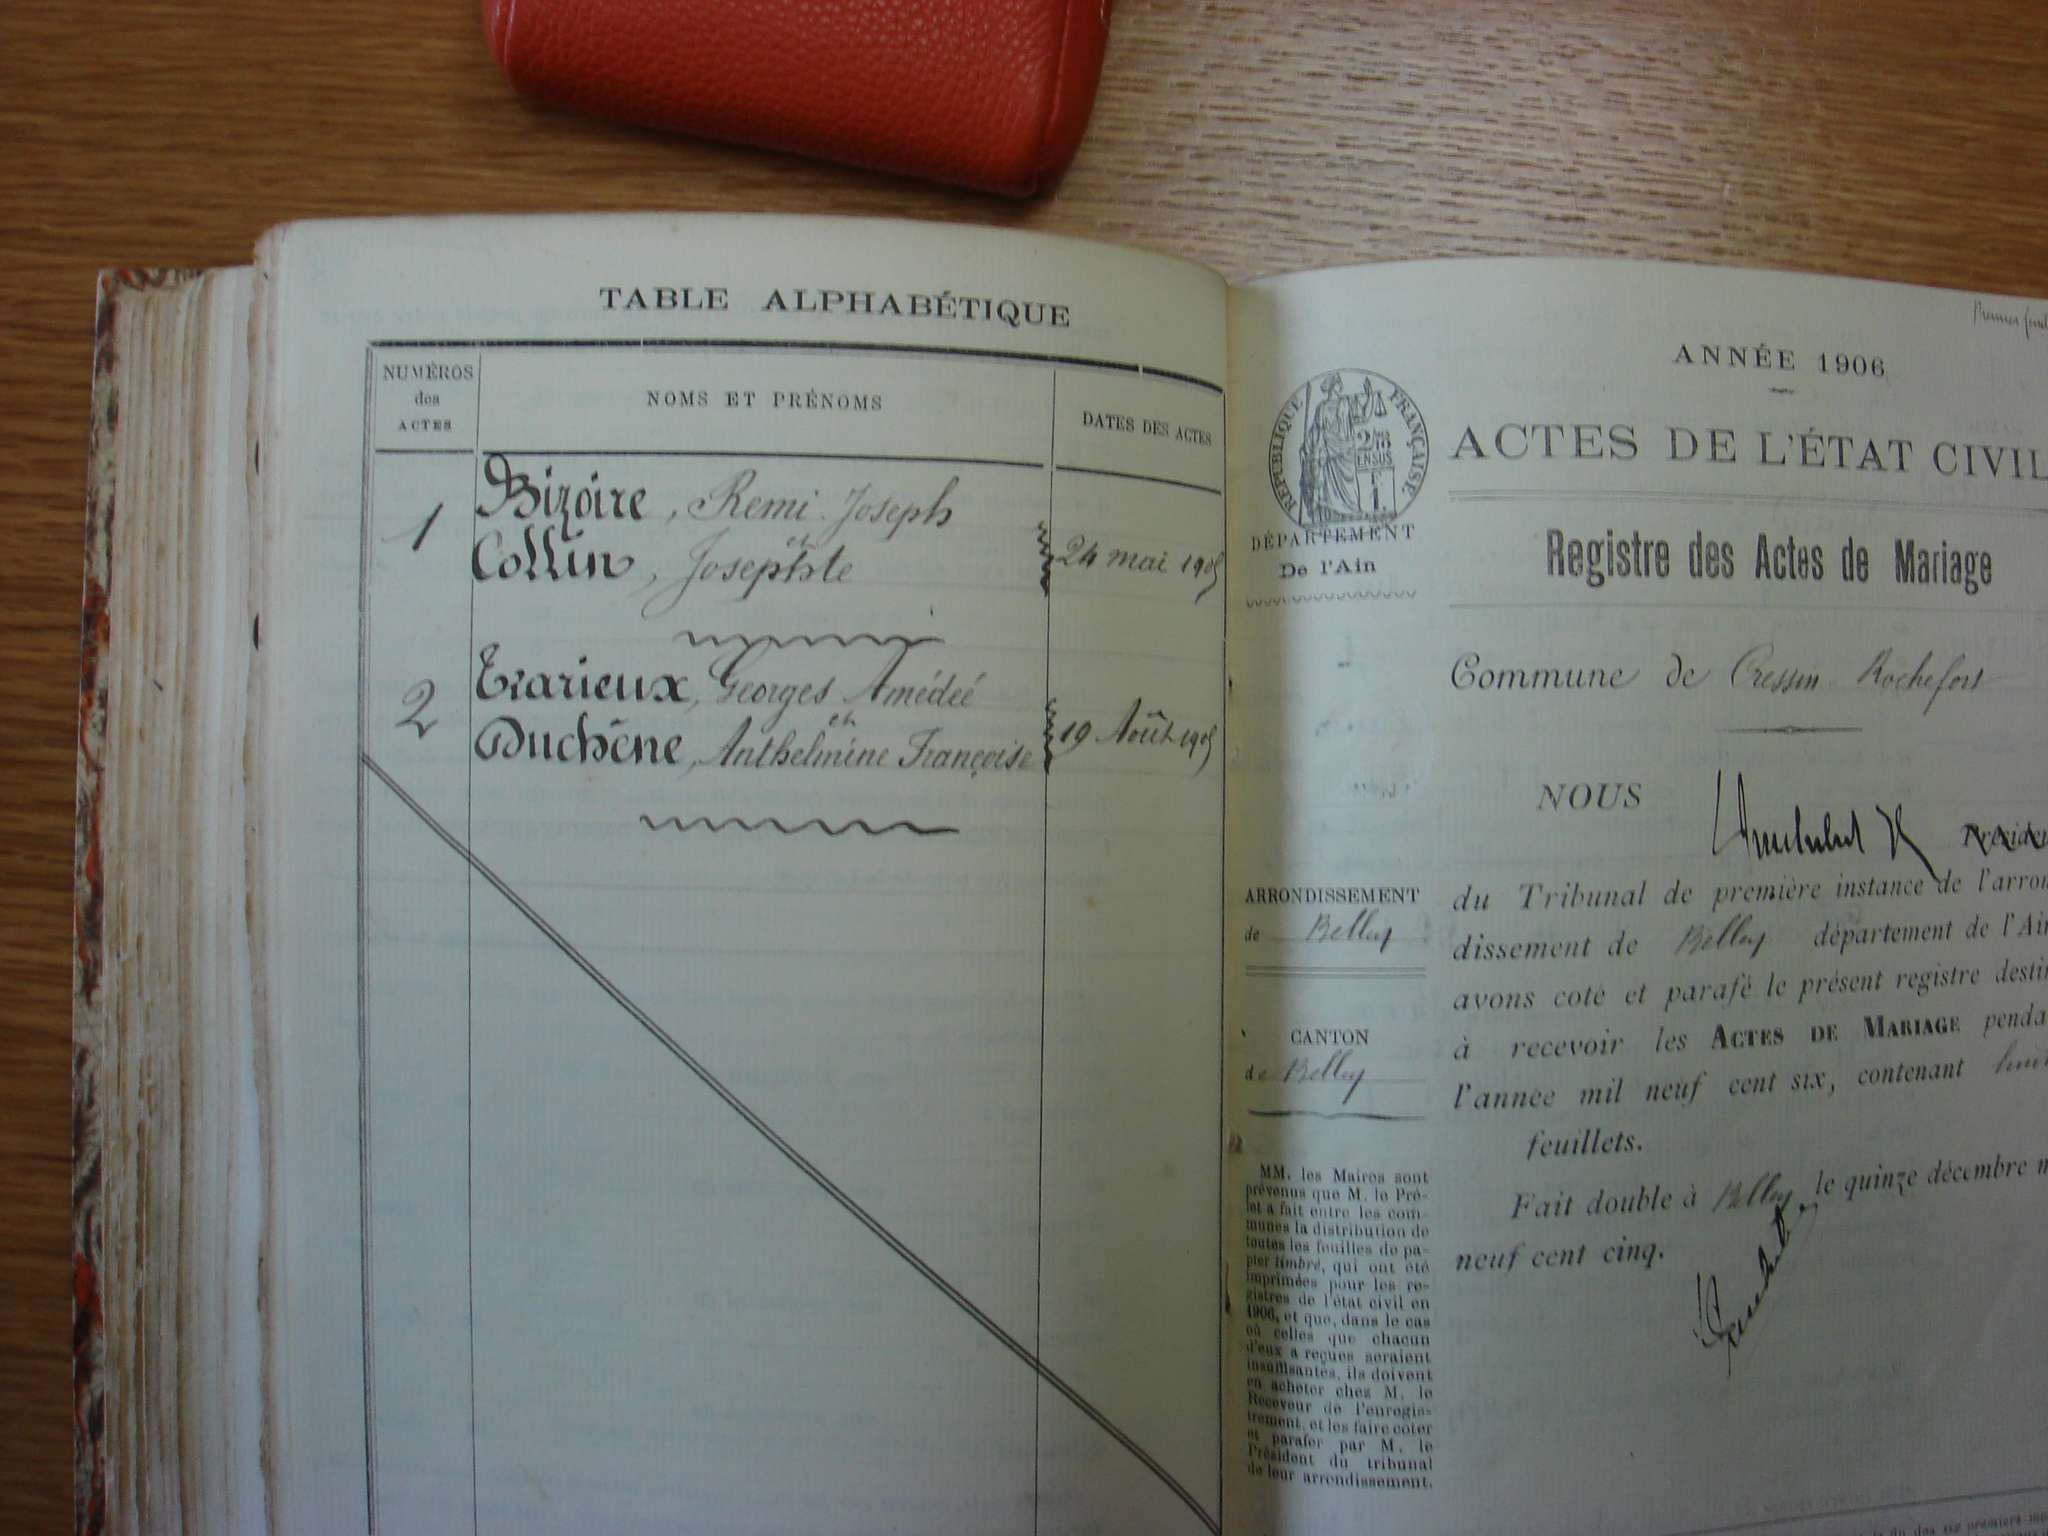 TABLE ALPHABÉTIQUE
NUMÉROS
des
ACTES
NOMS ET PRÉNOMS
DATES DES ACTES
1
Bizoire, Remi Joseph
et
Collin, Josephte
24 mai 1905
2
Trarieux, Georges Amédeé
et
Duchêne, Anthelmine Françoise
19 Août 1905
Premier
ANNÉE 1906
RÉPUBLIQUE FRANÇAISE
ACTES DE L'ÉTAT CIVIL
DÉPARTEMENT
De l'Ain
Registre des Actes de Mariage
Commune de Cressin Rochefort
NOUS
ARRONDISSEMENT
de Belley
CANTON
de Belley
MM. les Maires sont
prévenus que M. le Pré-
fet a fait entre les com-
munes la distribution de
toutes les feuilles de pa-
pier timbré, qui ont été
imprimées pour les re-
gistres de l'état civil en
1906, et que, dans le cas
où celles que chacun
d'eux a reçues seraient
insuffisantes, ils doivent
en acheter chez M. le
Receveur de l'enregis-
trement, et les faire coter
et parafer par M. le
Président du tribunal
de leur arrondissement.
du Tribunal de première instance de l'arron
dissement de Belley département de l'Ain
avons coté et parafé le présent registre destin
à recevoir les ACTES DE MARIAGE penda
l'année mil neuf cent six, contenant
feuillets.
Fait double à Belley, le quinze décembre m
neuf cent cinq.